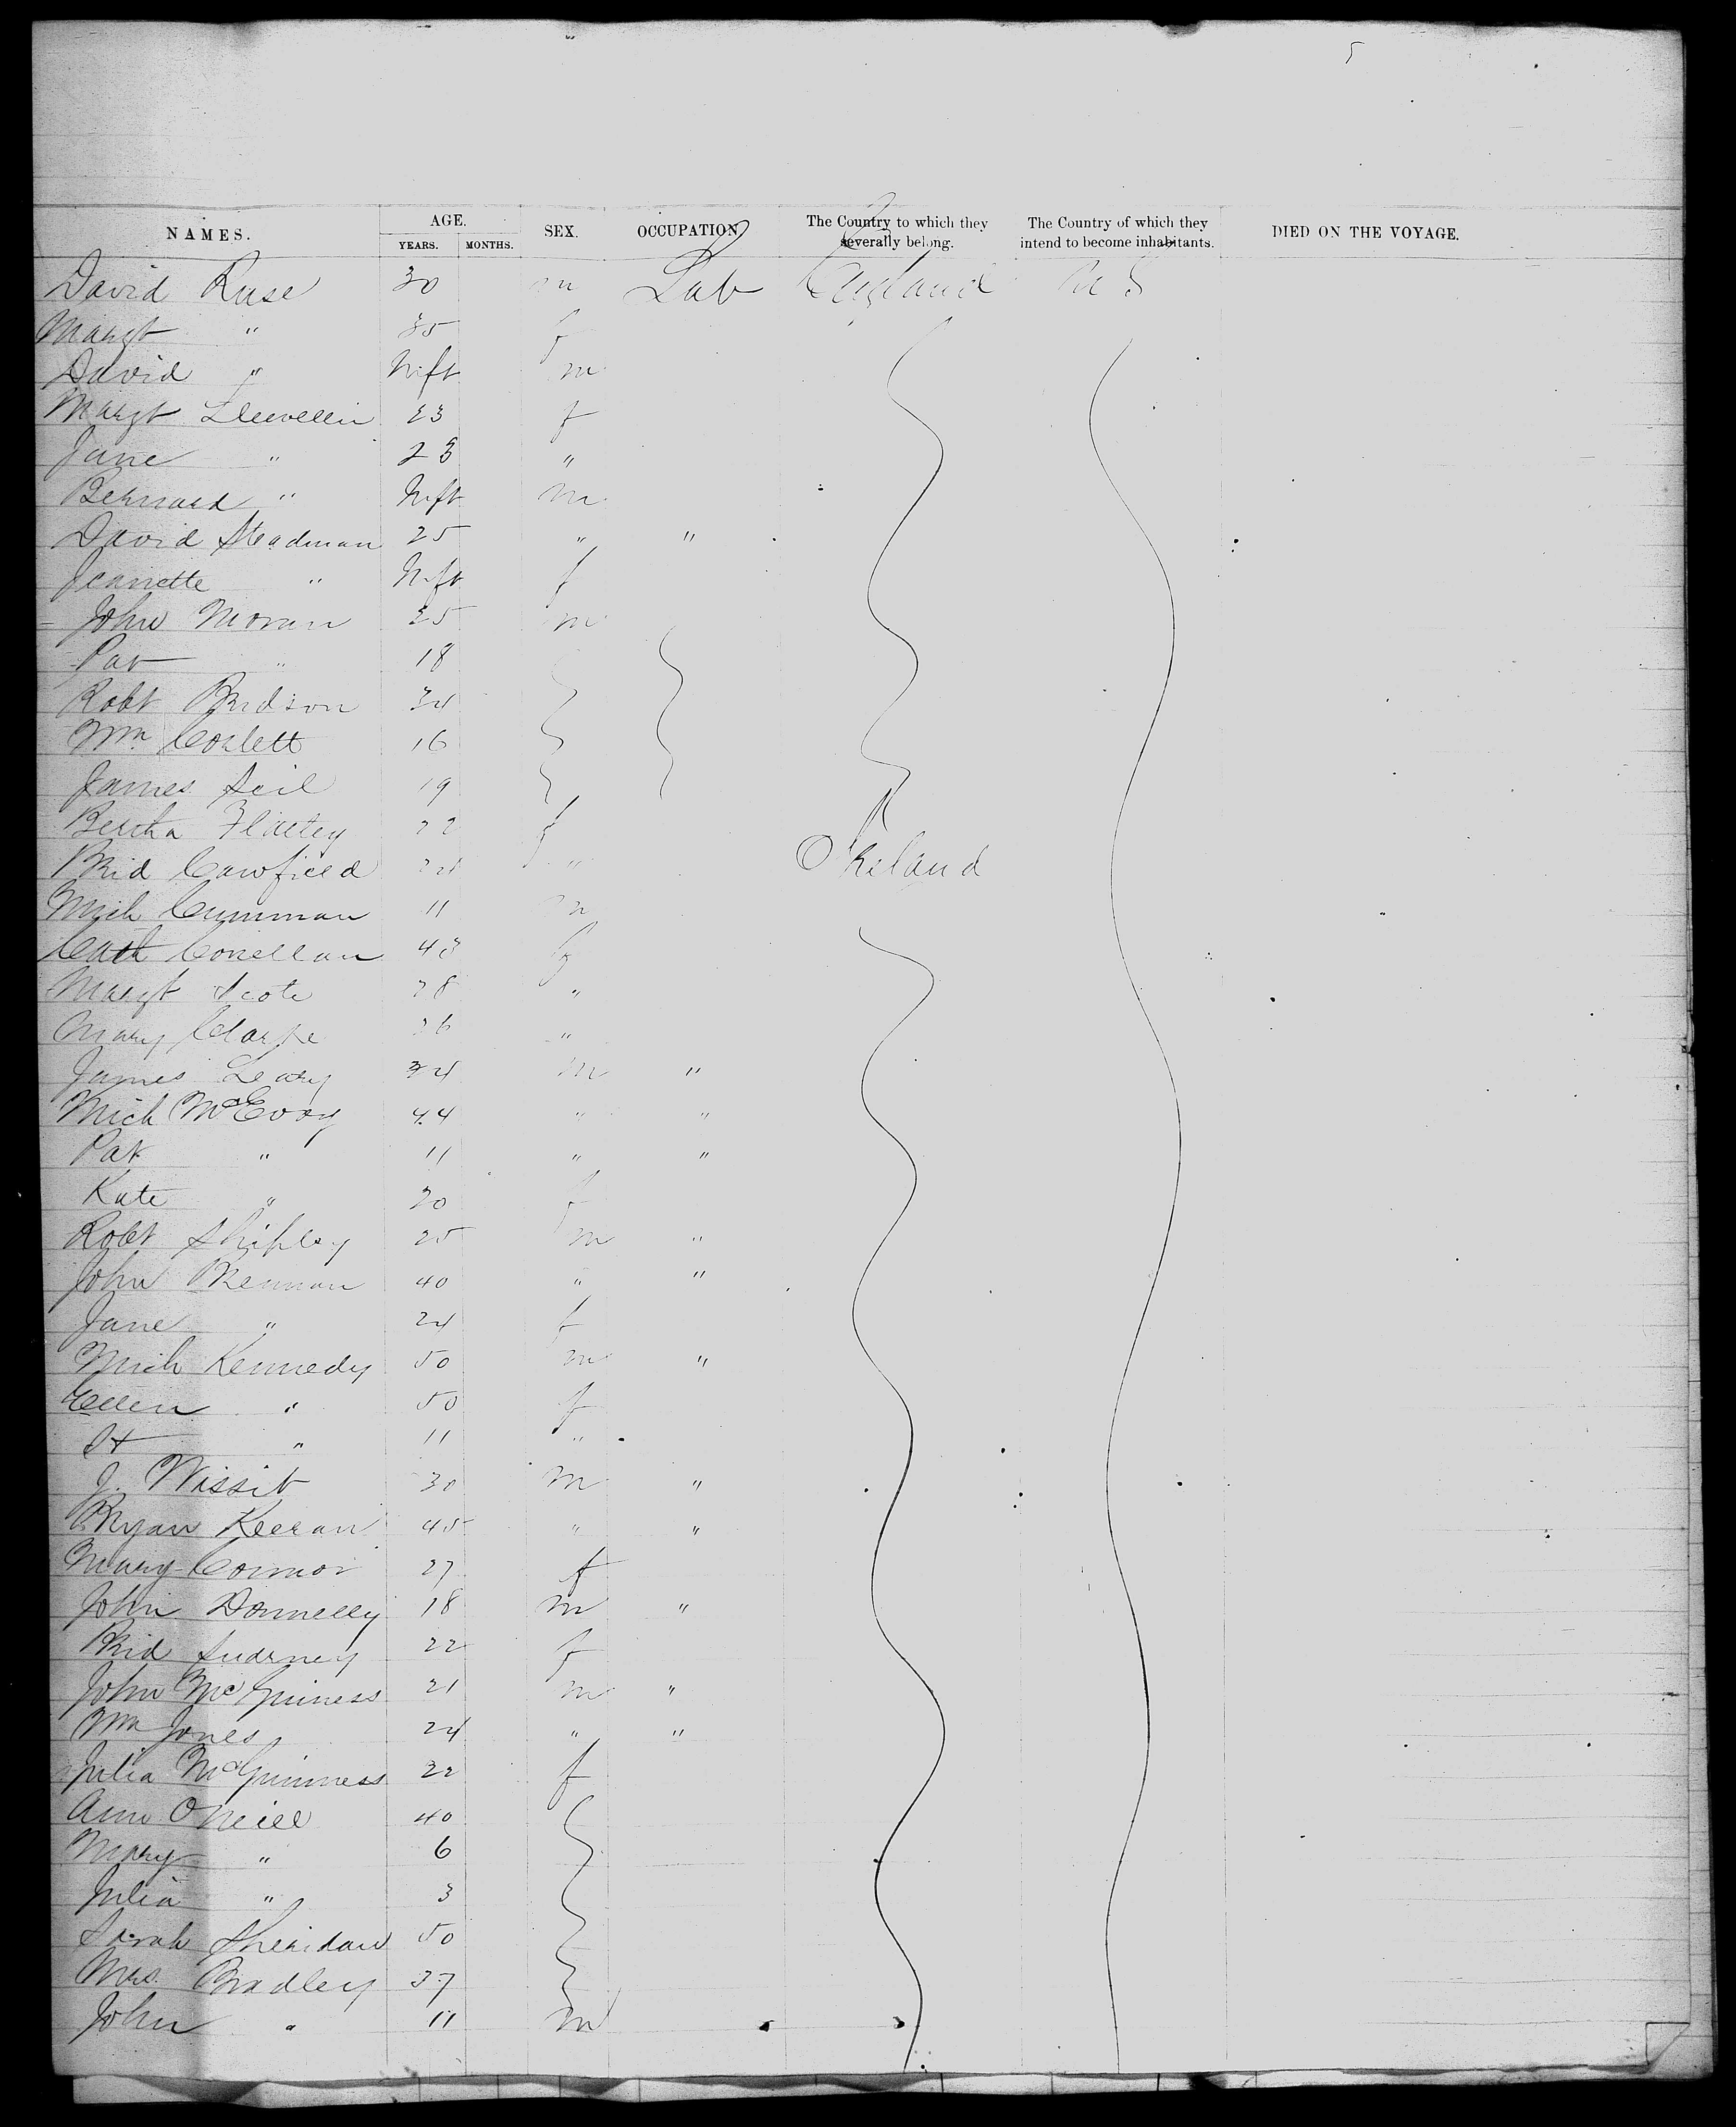 5
NAMES. AGE. YEARS. MONTHS. SEX. OCCUPATION The Country to which they severally belong. The Country of which they intend to become inhabitants. DIED ON THE VOYAGE.
David Ruse 30 m Lab England U S
Margt " 35 f
David " Inft m
Margt Llewellin 23 f
Jane " 23 "
Bernard " Inft m
David Steadman 25 " "
Jeanette " Inft f
John Moran 25 m
Pat " 18
Robt Bridson 34
Wm Corlett 16
James Seil 19
Bertha Flattey 22 f
Brid Cawfield 24 " Ireland
Mich Cumman 11 m
Cath Conellan 43 f
Margt Scote 28 "
Mary Clarke 26 "
James Leary 34 m "
Mich McEvoy 44 " "
Pat " 11 " "
Kate " 20 f
Robt Shipley 25 m "
John Brennan 40 " "
Jane " 24 f
Mich Kennedy 50 m "
Ellen " 50 f
" 11 "
J. Wissit 30 m "
Bryan Keeran 45 " "
Mary Connor 27 f
John Donnelly 18 m "
Brid Suerney 22 f
John McGuiness 21 m "
Wm Jones 24 " "
Julia McGuinness 22 f
Ann O'Neill 40
Mary " 6
Julia " 3
Sarah Sheridan 50
Mrs. Bradley 37
John " 11 m